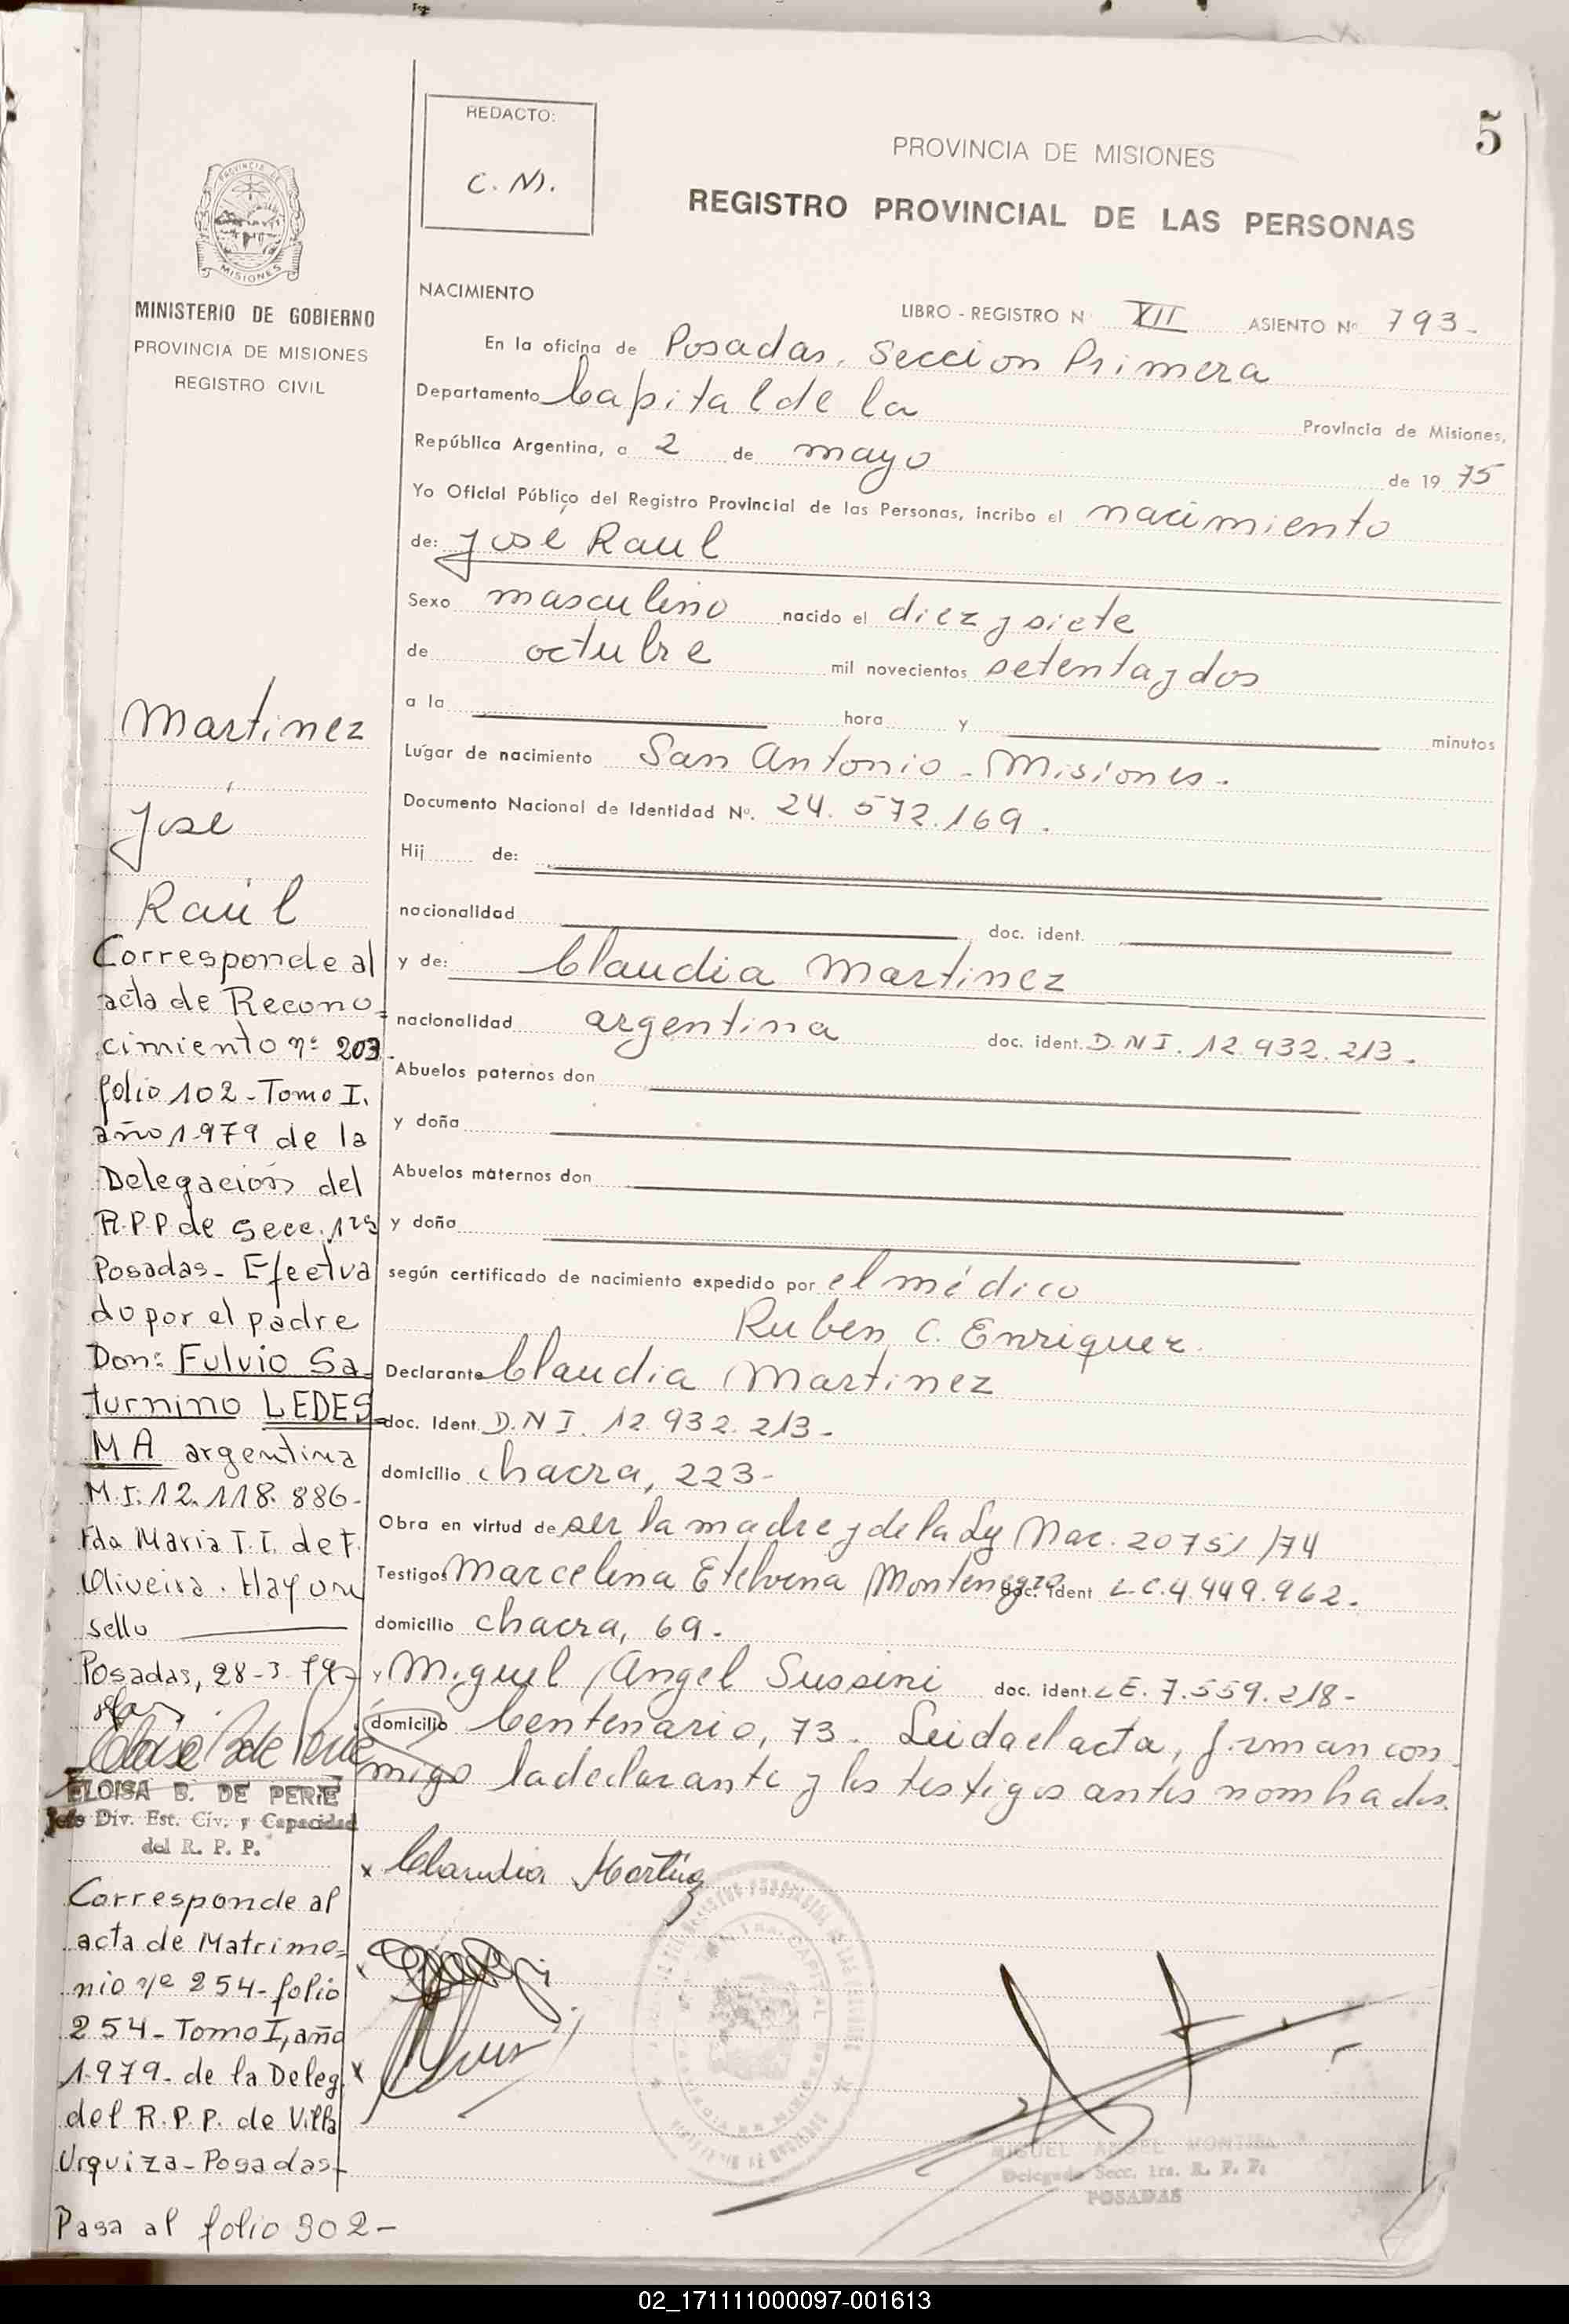 5
REDACTO:
C. M.
PROVINCIA DE MISIONES
REGISTRO PROVINCIAL DE LAS PERSONAS
MISIONES
MINISTERIO DE GOBIERNO
PROVINCIA DE MISIONES
REGISTRO CIVIL
NACIMIENTO
LIBRO - REGISTRO N XII ASIENTO Nº 793-
En la oficina de Posadas, Sección Primera
Departamento Capital de la Provincia de Misiones,
República Argentina, a 2 de mayo de 19 75
Yo Oficial Público del Registro Provincial de las Personas, incribo el nacimiento
de: José Raul
Sexo masculino nacido el diez y siete
de octubre mil novecientos setenta y dos
a la hora y minutos
Lugar de nacimiento San Antonio - Misiones.
Documento Nacional de Identidad Nº. 24.572.169.
Hij de:
nacionalidad doc. ident.
y de: Claudia Martinez
nacionalidad argentina doc. ident. D.N.I. 12.932.213.
Abuelos paternos don
y doña
Abuelos maternos don
y doña
según certificado de nacimiento expedido por el médico
Ruben C. Enriquez.
Declarante Claudia Martinez
doc. Ident. D.N.I. 12.932.213.
domicilio chacra, 223-
Obra en virtud de ser la madre y de la Ley Nac. 20751/74
Testigos Marcelina Etelvina Montenegro doc. ident L.C. 4.449.962.
domicilio chacra, 69.
y Miguel Angel Sussini doc. ident. L.E. 7.559.218-
domicilio Centenario, 73. Leida el acta, firman con
migo la declarante y los testigos antes nombrados.
Claudia Martinez
Martinez
José
Raúl
Corresponde al
acta de Recono=
cimiento nº 203.
folio 102-Tomo I.
año 1979 de la
Delegación del
R.P.P de Secc. 1ra
Posadas- Efectua
do por el padre
Don: Fulvio Sa=
turnino LEDES=
MA argentina
M.I: 12.118.886-
Fda Maria T.I. de F.
Oliveira. Hay un
sello
Posadas, 28-3-79
ELOISA B. DE PERIE
Jefe Div. Est. Civ. y Capacidad
del R. P. P.
Corresponde al
acta de Matrimo=
nio nº 254-folio
254-Tomo I, año
1979- de la Deleg.
del R.P.P. de Villa
Urquiza-Posadas-
Pasa al folio 302-
Delegado Secc. 1ra. R. P. P.
POSADAS
02_171111000097-001613